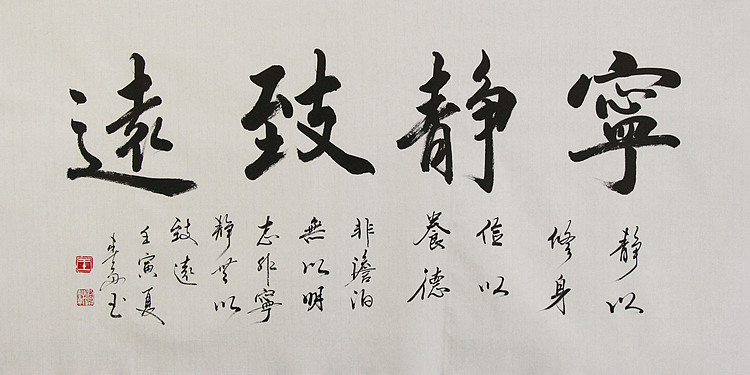 寧静致遠
静以
修身
儉以
養德
非澹泊
無以明
志非寧
静無以
致遠
壬寅夏
玉